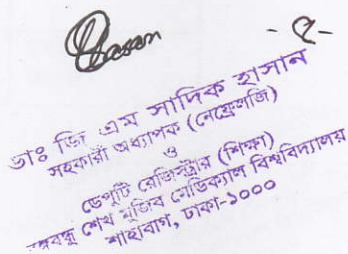 Hasan
- ৫-
ডাঃ জি এম সাদিক হাসান
সহকারী অধ্যাপক (নেফ্রোলজি)
ও
ডেপুটি রেজিস্ট্রার (শিক্ষা)
বঙ্গবন্ধু শেখ মুজিব মেডিক্যাল বিশ্ববিদ্যালয়
শাহবাগ, ঢাকা-১০০০